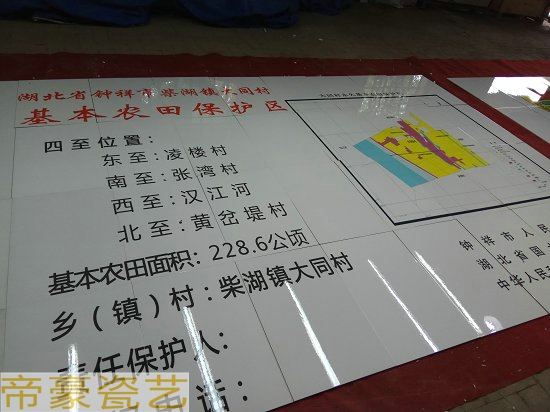 湖北省钟祥市柴湖镇大同村
基本农田保护区
四至位置：
东至：凌楼村
南至：张湾村
西至：汉江河
北至：黄岔堤村
基本农田面积：228.6公顷
乡（镇）村：柴湖镇大同村
责任保护人：
电话：
钟祥市人民
湖北省国
中华人民
帝豪瓷艺